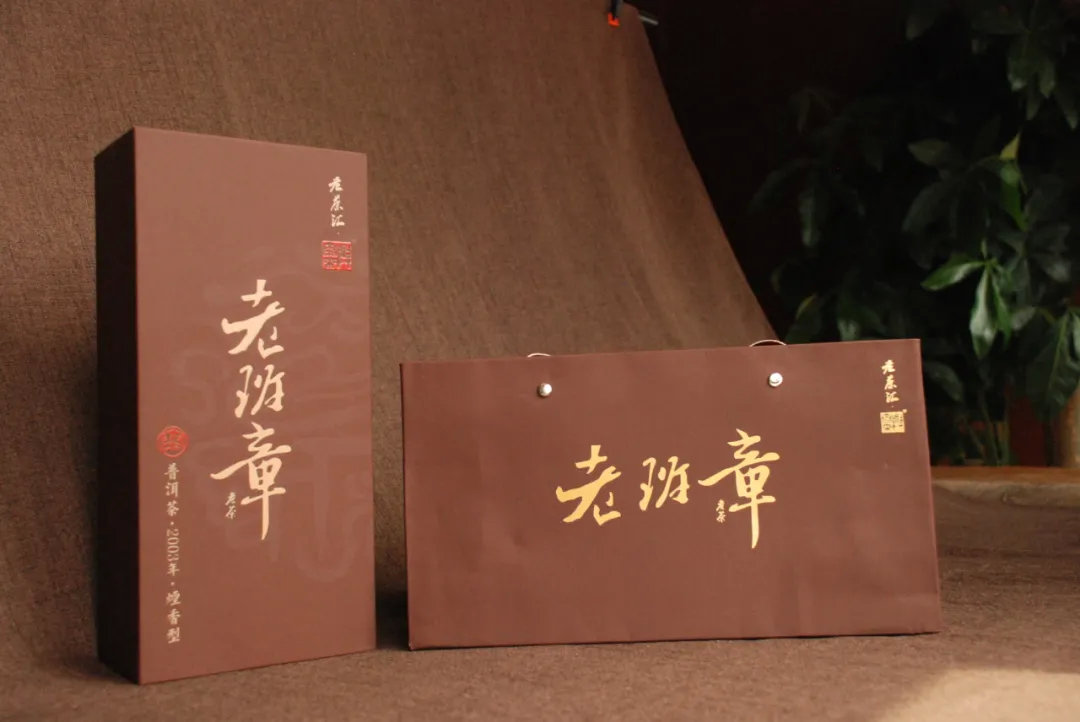 老茶汇
老班章
老茶
普洱茶·2003年·煙香型
老茶汇
老班章
老茶